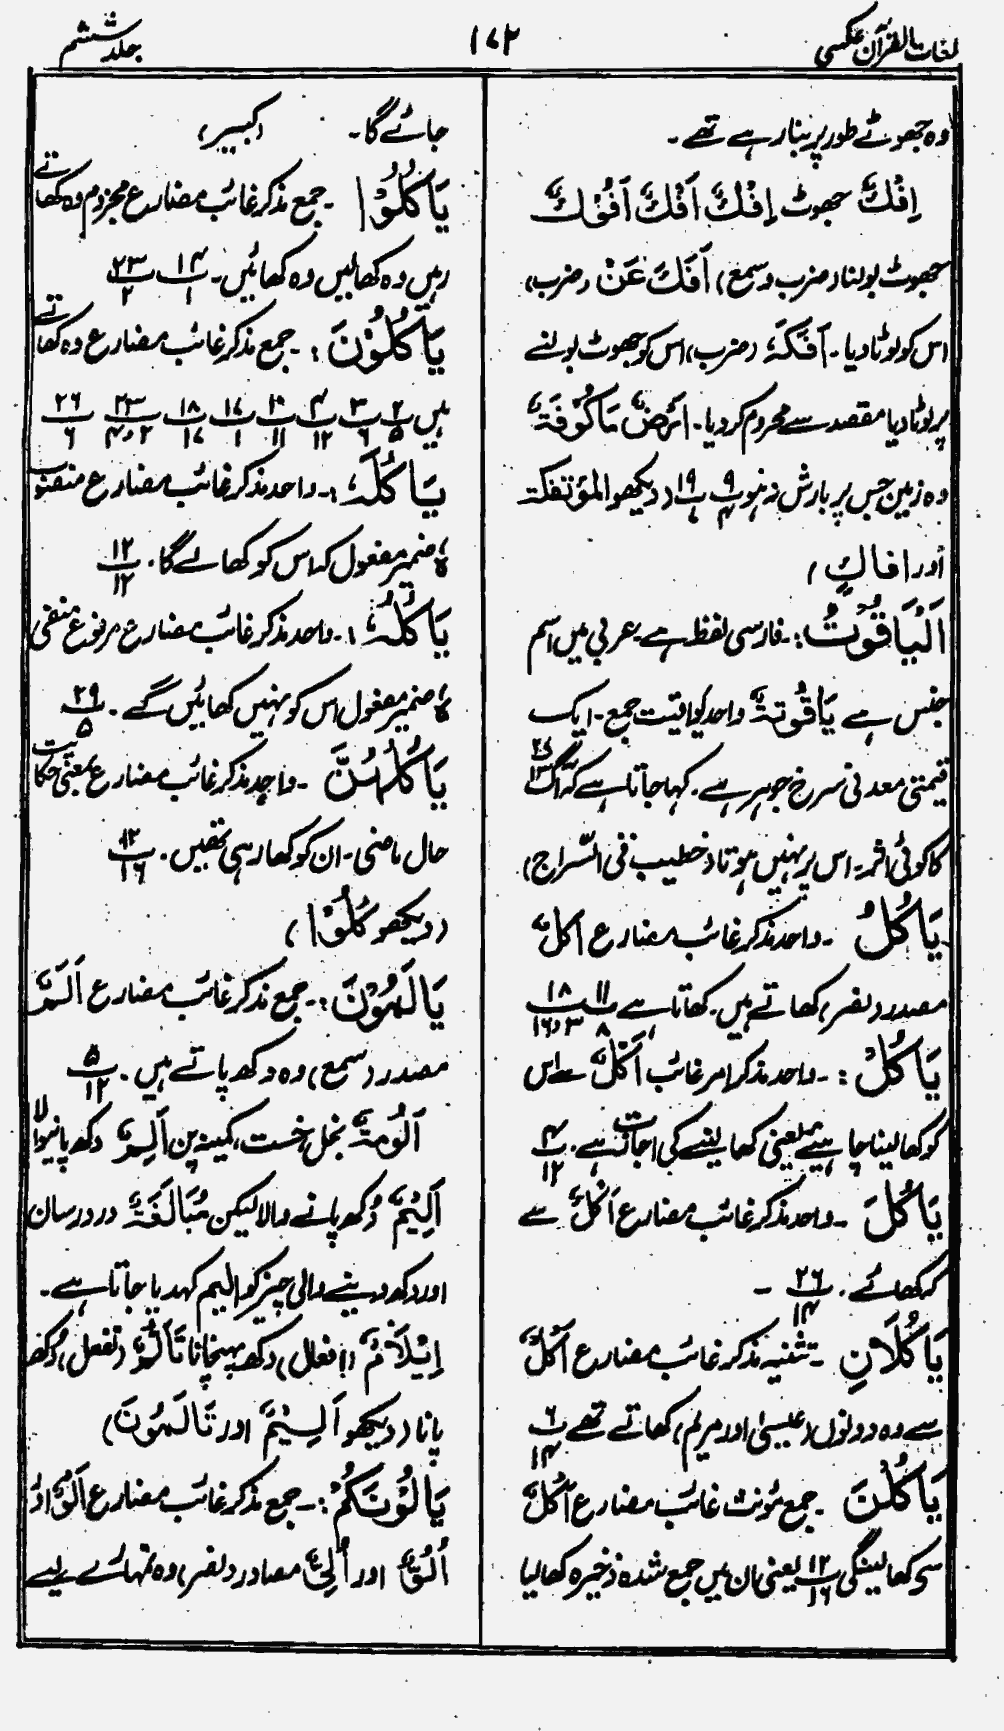 لغات القرآن عکسی
۱۷۲
جلد ششم
وہ جھوٹے طور پر بنا رہے تھے۔
اِفْكٌ جھوٹ اِفْكٌ اَفْكٌ اَفُوْكٌ
جھوٹ بولنا (ضرب وسمع) اَفَكَ عَنْ (ضرب)
اس کو لوٹا دیا۔ اَفَكَهٗ (ضرب) اس کو جھوٹ بولنے
پر لوٹا دیا مقصد سے محروم کر دیا۔ اَرْضٌ مَاْكُوْفَةٌ
وہ زمین جس پر بارش نہ ہو ۹/۴ ۱۹/۷ (دیکھو المؤتفکتہ
اور افاكٍ)
اَلْيَاقُوْتُ:۔ فارسی لفظ ہے۔ عربی میں اسم
جنس ہے يَاقُوتَةٌ واحد یواقیت جمع۔ ایک
قیمتی معدنی سرخ جوہر ہے۔ کہا جاتا ہے کہ آگ
کا کوئی اثر۔ اس پر نہیں ہوتا (خطیب فی السّراج)
يَاكُلُ ۔ واحد مذکر غائب مضارع اکلٌ
مصدر (نصر) کھاتے ہیں۔ کھاتا ہے ۱۱/۸ ۱۸/۳ و۱۶
يَاكُلْ:۔ واحد مذکر امر غائب اَكْلٌ سے اس
کو کھا لینا چاہیے یعنی کھا لینے کی اجازت ہے۔ ۴/۱۲
يَاكُلَ ۔ واحد مذکر غائب مضارع اَكْلٌ سے
کہ کھائے۔ ۲۶/۱۴ ۔
يَاكُلَانِ ۔ تثنیہ مذکر غائب مضارع اَكْلٌ
سے وہ دونوں (عیسیٰ اور مریم) کھاتے تھے ۶/۱۴
يَاكُلْنَ ۔ جمع مؤنث غائب مضارع اَكْلٌ
سے کھا لینگی ۱۲/۱۶ یعنی ان میں جمع شدہ ذخیرہ کھا لیا
جائے گا۔ (کبیر)
يَاكُلُوْا ۔ جمع مذکر غائب مضارع مجزوم وہ کھاتے
رہیں وہ کھا لیں وہ کھائیں۔ ۱۴/۱ ۲۳/۲
يَاكُلُوْنَ:۔ جمع مذکر غائب مضارع وہ کھاتے
ہیں ۲/۵ ۳/۶ ۴/۱۲ ۱۰/۱۱ ۱۷/۱ ۱۸/۱۷ ۲۳/۲و۴ ۲۶/۶
يَاكُلَهٗ:۔ واحد مذکر غائب مضارع منصوب
ہٗ ضمیر مفعول کہ اس کو کھا لے گا۔ ۱۲/۱۲
يَاكُلُهٗ:۔ واحد مذکر غائب مضارع مرفوع منفی
ہٗ ضمیر مفعول اس کو نہیں کھائیں گے۔ ۲۹/۵
يَاكُلُهُنَّ ۔ واحد مذکر غائب مضارع بمعنی حکایت
حال ماضی۔ ان کو کھا رہی تھیں۔ ۱۲/۱۶
(دیکھو كُلُوْا)
يَالَمُوْنَ:۔ جمع مذکر غائب مضارع اَلَمٌ
مصدر (سمع) وہ دکھ پاتے ہیں۔ ۵/۱۲
اَلُوْمَةٌ بخل، خست، کمینہ پن اَلِمٌ دکھ پانیوالا
اَلِيْمٌ دُکھ پانے والا لیکن مُبَالَغَةً درد رساں
اور دکھ دینے والی چیز کو الیم کہہ دیا جاتا ہے۔
اِيْلَامٌ (افعال) دکھ پہنچانا تَاَلُّمٌ (تفعل) دُکھ
پانا (دیکھو اَلِيْمٌ اور تَالَمُوْنَ)
يَالُوْنَكُمْ:۔ جمع مذکر غائب مضارع اَلْوٌ اور
اُلُوٌّ اور اُلِیٌّ مصادر (نصر) وہ تمہارے لیے